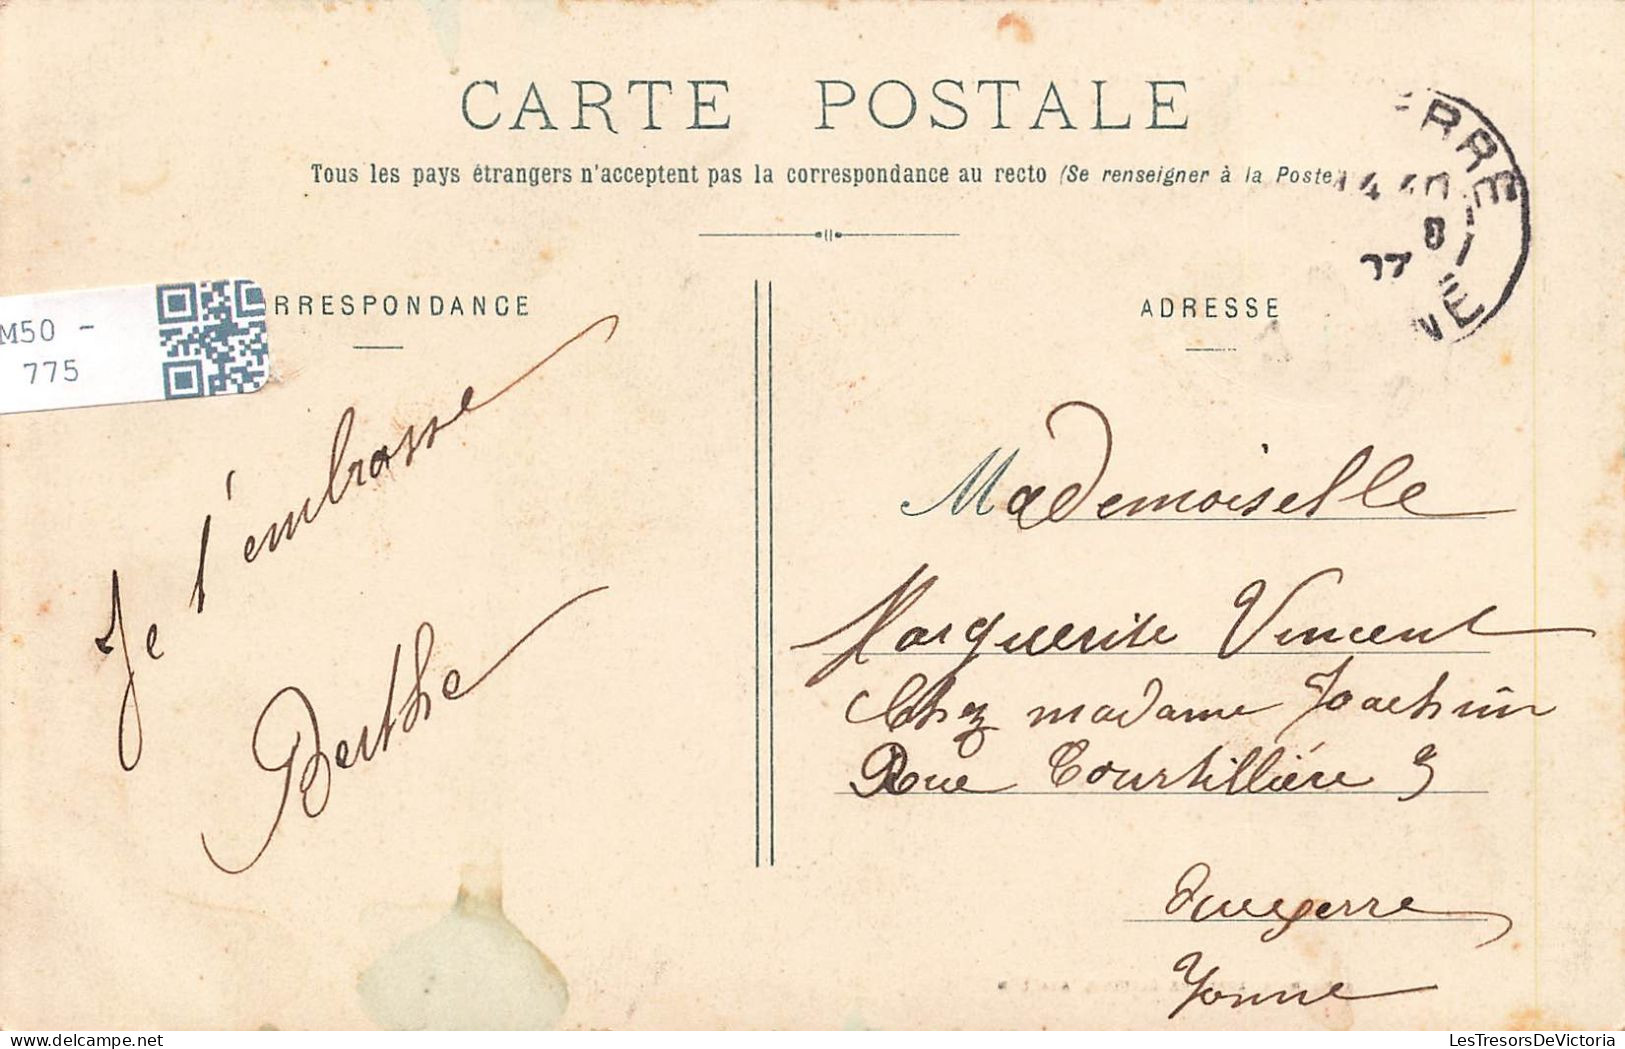 CARTE POSTALE
Tous les pays étrangers n'acceptent pas la correspondance au recto (Se renseigner à la Poste)
RRESPONDANCE
M50 -
775
Je t'embrasse
Berthe
ADRESSE
Mademoiselle
Marguerite Vincent
Chez madame Joachim
Rue Tourtillière
Auxerre
Yonne
ERRE
8
NE
LesTresorsDeVictoria